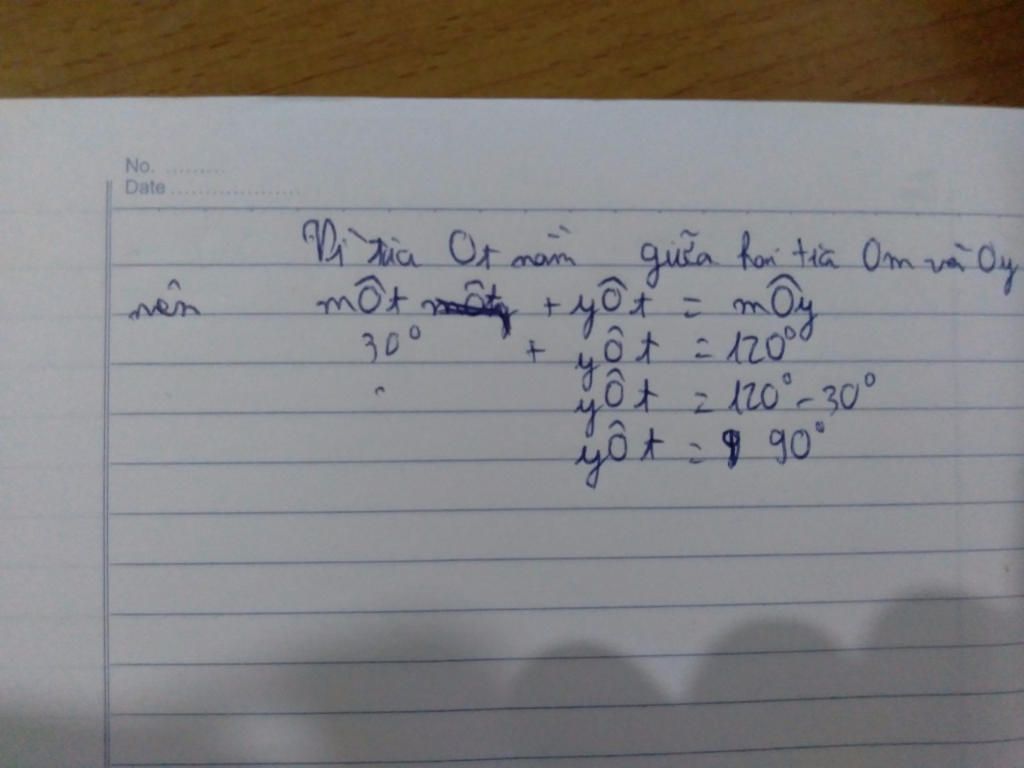 No. .........
Date ...................
Vì tia Ot nằm giữa hai tia Om và Oy
nên mÔt + yÔt = mÔy
30° + yÔt = 120°
yÔt = 120° - 30°
yÔt = 90°